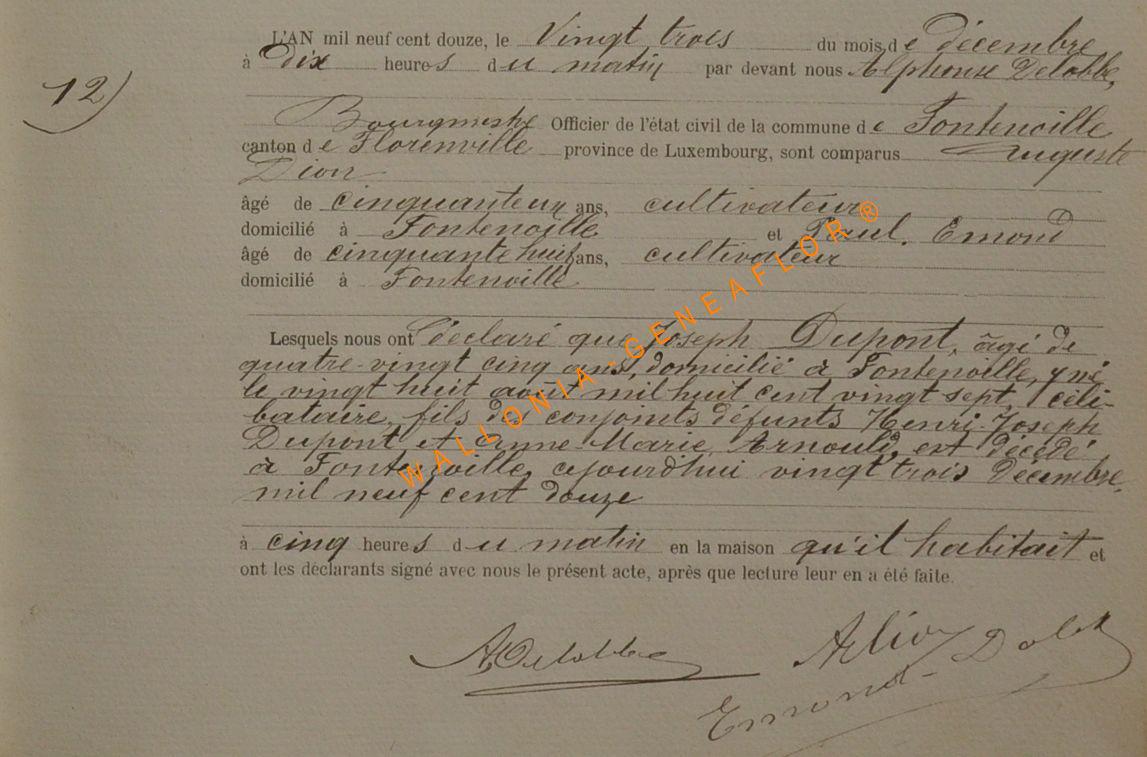 L'AN mil neuf cent douze, le Vingt trois du mois de décembre
12)
à dix heures du matin par devant nous Alphonse Delobbe,
Bourgmestre Officier de l'état civil de la commune de Fontenoille
canton de Florenville province de Luxembourg, sont comparus Auguste
Dion
âgé de cinquante un ans, cultivateur
domicilié à Fontenoille et Paul Emond
âgé de cinquante huit ans, cultivateur
domicilié à Fontenoille
Lesquels nous ont déclaré que Joseph Dupont, âgé de
quatre-vingt cinq ans, domicilié à Fontenoille, y né
le vingt huit août mil huit cent vingt sept, céli-
bataire, fils des conjoints défunts Henri-Joseph
Dupont et Anne-Marie Arnould, est décédé
à Fontenoille, cejourd'hui vingt trois Décembre
mil neuf cent douze
à cinq heures du matin en la maison qu'il habitait et
ont les déclarants signé avec nous le présent acte, après que lecture leur en a été faite.
A. Delobbe
Emond
WALLONIA-GENEAFLOR®